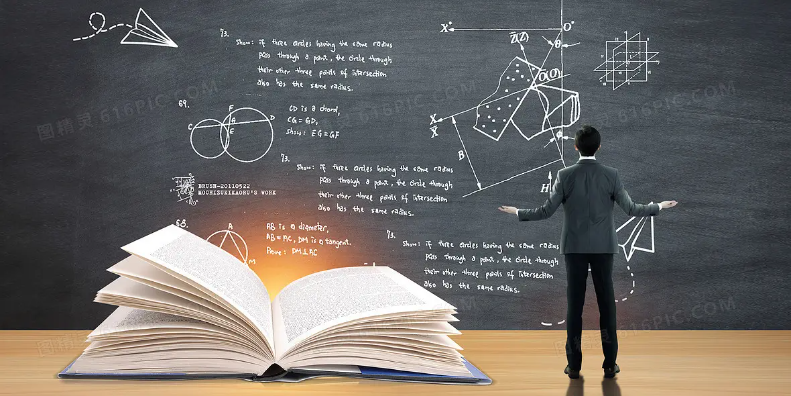 73.
Show: if three circles having the same radius
pass through a point, the circle through
their other three points of intersection
also has the same radius.
69.
CD is a chord,
CG = GD,
Show: EG = GF
F
C
G
D
E
73.
Show: if three circles having the same radius
pass through a point, the circle through
their other three points of intersection
also has the same radius.
BRUSH-20110522
MOCHIZUKIKAORU'S WORK
68.
A
M
AB is a diameter,
AB = AC, DM is a tangent.
Prove: DM⊥AC
73.
Show: if three circles having the same radius
pass through a point, the circle through
their other three points of intersection
also has the same radius.
X°
O°
Z(Z)
θ
O(O)
X
X
B
φ
H
图精灵 616PIC.COM